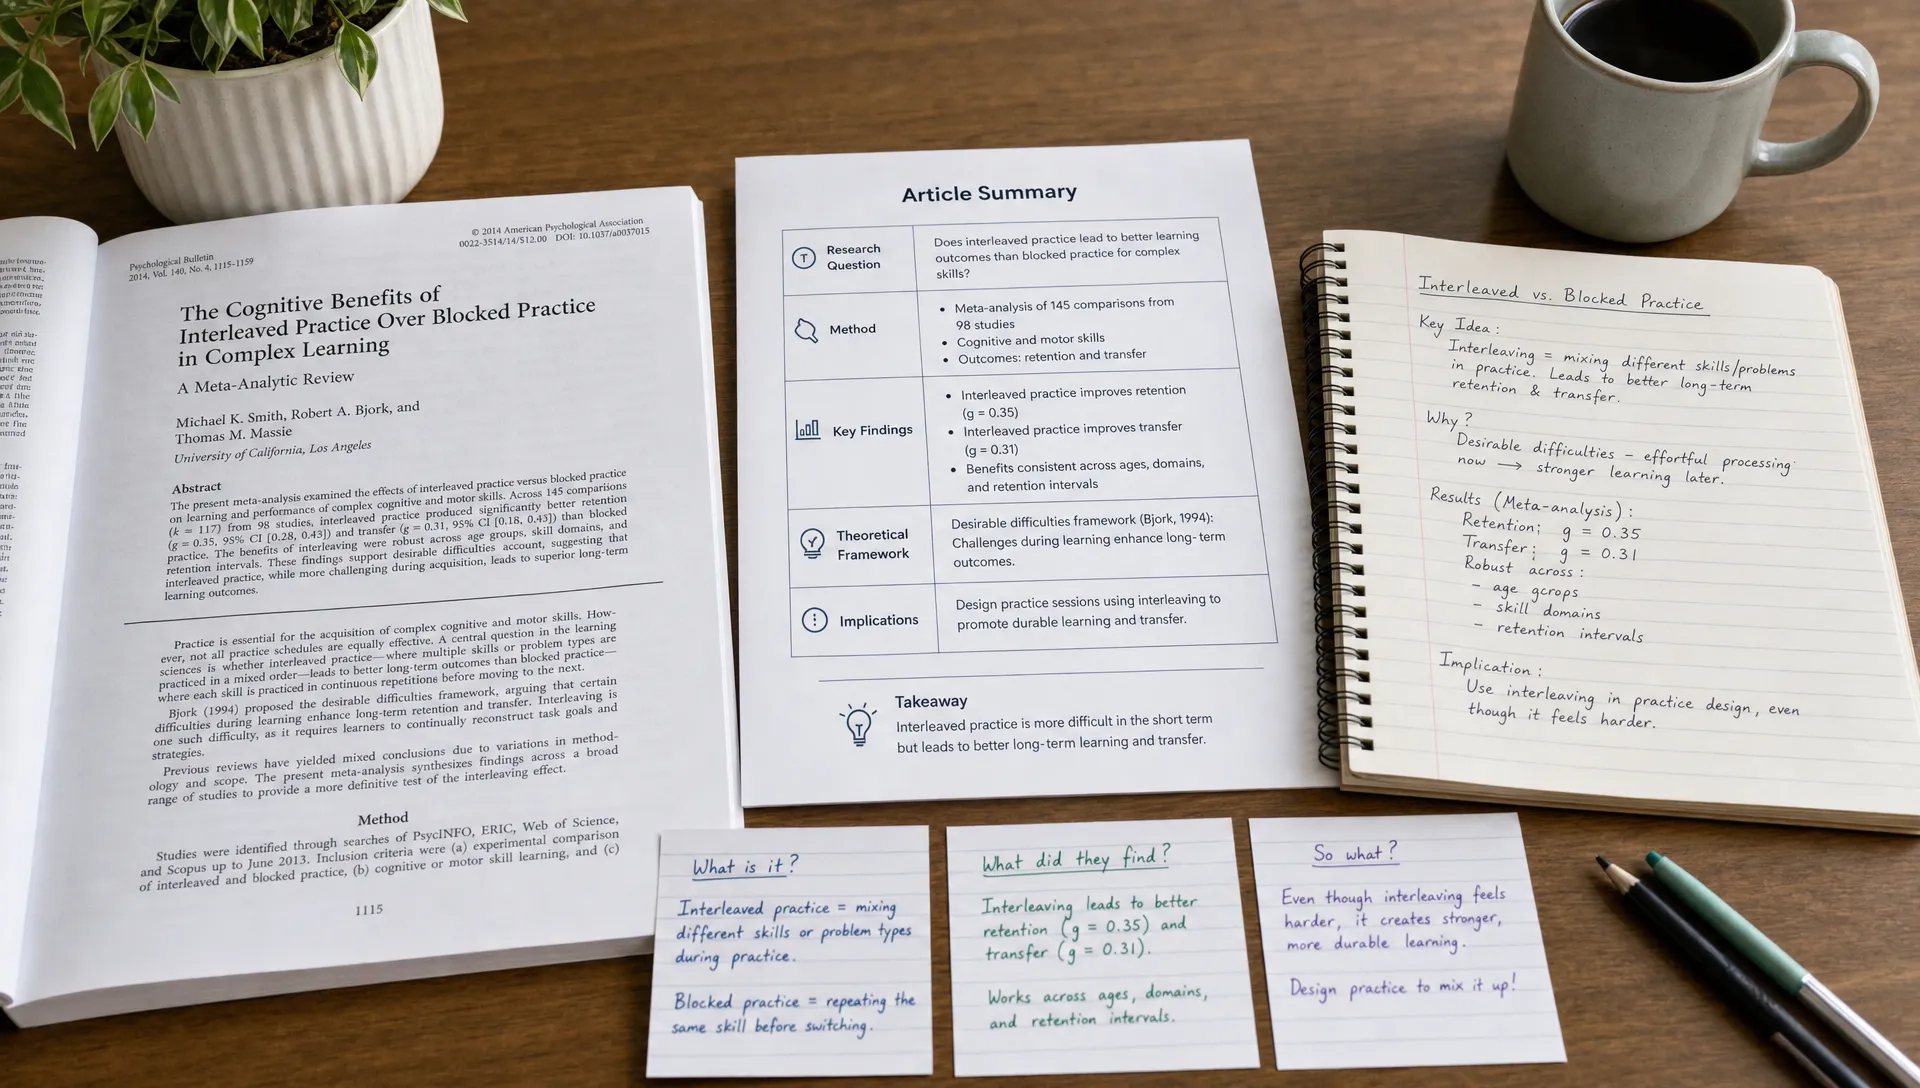 © 2014 American Psychological Association
0022-3514/14/512.00 DOI: 10.1037/a0037015
Psychological Bulletin
2014, Vol. 140, No. 4, 1115-1159
The Cognitive Benefits of
Interleaved Practice Over Blocked Practice
in Complex Learning
A Meta-Analytic Review
Michael K. Smith, Robert A. Bjork, and
Thomas M. Massie
University of California, Los Angeles
Abstract
The present meta-analysis examined the effects of interleaved practice versus blocked practice
on learning and performance of complex cognitive and motor skills. Across 145 comparisons
(k = 117) from 98 studies, interleaved practice produced significantly better retention
(g = 0.35, 95% CI [0.28, 0.43]) and transfer (g = 0.31, 95% CI [0.18, 0.43]) than blocked
practice. The benefits of interleaving were robust across age groups, skill domains, and
retention intervals. These findings support desirable difficulties account, suggesting that
interleaved practice, while more challenging during acquisition, leads to superior long-term
learning outcomes.
Practice is essential for the acquisition of complex cognitive and motor skills. How-
ever, not all practice schedules are equally effective. A central question in the learning
sciences is whether interleaved practice—where multiple skills or problem types are
practiced in a mixed order—leads to better long-term outcomes than blocked practice—
where each skill is practiced in continuous repetitions before moving to the next.
Bjork (1994) proposed the desirable difficulties framework, arguing that certain
difficulties during learning enhance long-term retention and transfer. Interleaving is
one such difficulty, as it requires learners to continually reconstruct task goals and
strategies.
Previous reviews have yielded mixed conclusions due to variations in method-
ology and scope. The present meta-analysis synthesizes findings across a broad
range of studies to provide a more definitive test of the interleaving effect.
Method
Studies were identified through searches of PsycINFO, ERIC, Web of Science,
and Scopus up to June 2013. Inclusion criteria were (a) experimental comparison
of interleaved and blocked practice, (b) cognitive or motor skill learning, and (c)
1115
Article Summary
T
Research
Question
Does interleaved practice lead to better learning
outcomes than blocked practice for complex
skills?
Method
• Meta-analysis of 145 comparisons from
98 studies
• Cognitive and motor skills
• Outcomes: retention and transfer
Key Findings
• Interleaved practice improves retention
(g = 0.35)
• Interleaved practice improves transfer
(g = 0.31)
• Benefits consistent across ages, domains,
and retention intervals
Theoretical
Framework
Desirable difficulties framework (Bjork, 1994):
Challenges during learning enhance long-term
outcomes.
Implications
Design practice sessions using interleaving to
promote durable learning and transfer.
Takeaway
Interleaved practice is more difficult in the short term
but leads to better long-term learning and transfer.
Interleaved vs. Blocked Practice
Key Idea:
Interleaving = mixing different skills/problems
in practice. Leads to better long-term
retention & transfer.
Why?
Desirable difficulties – effortful processing
now → stronger learning later.
Results (Meta-analysis):
Retention; g = 0.35
Transfer; g = 0.31
Robust across:
- age gcrops
- skill domains
- retention intervals
Implication:
Use interleaving in practice design, even
though it feels harder.
What is it?
Interleaved practice = mixing
different skills or problem types
during practice.
Blocked practice = repeating the
same skill before switching.
What did they find?
Interleaving leads to better
retention (g = 0.35) and
transfer (g = 0.31).
Works across ages, domains,
and retention intervals.
So what?
Even though interleaving feels
harder, it creates stronger,
more durable learning.
Design practice to mix it up!